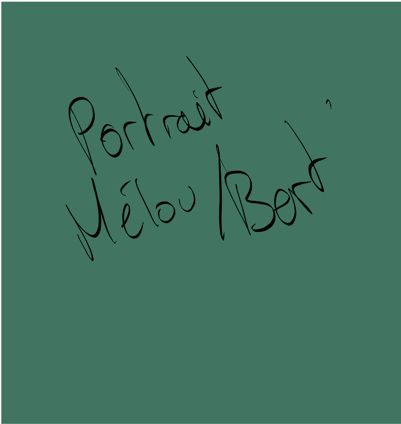 Portrait
Mélou/Bert